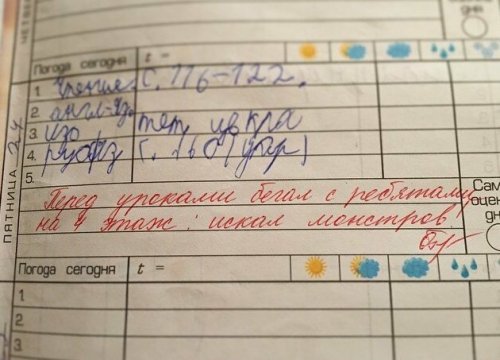 ЧЕТВЕ
дня
Погода сегодня t =
1 Чтение с. 116-122.
2. англ-яз.
3. изо
4.
5.
ПЯТНИЦА 24
Перед уроками бегал с ребятами
на 4 этаж: искал монстров.
Сам
оцен
дн
Погода сегодня t =
1
2
3.